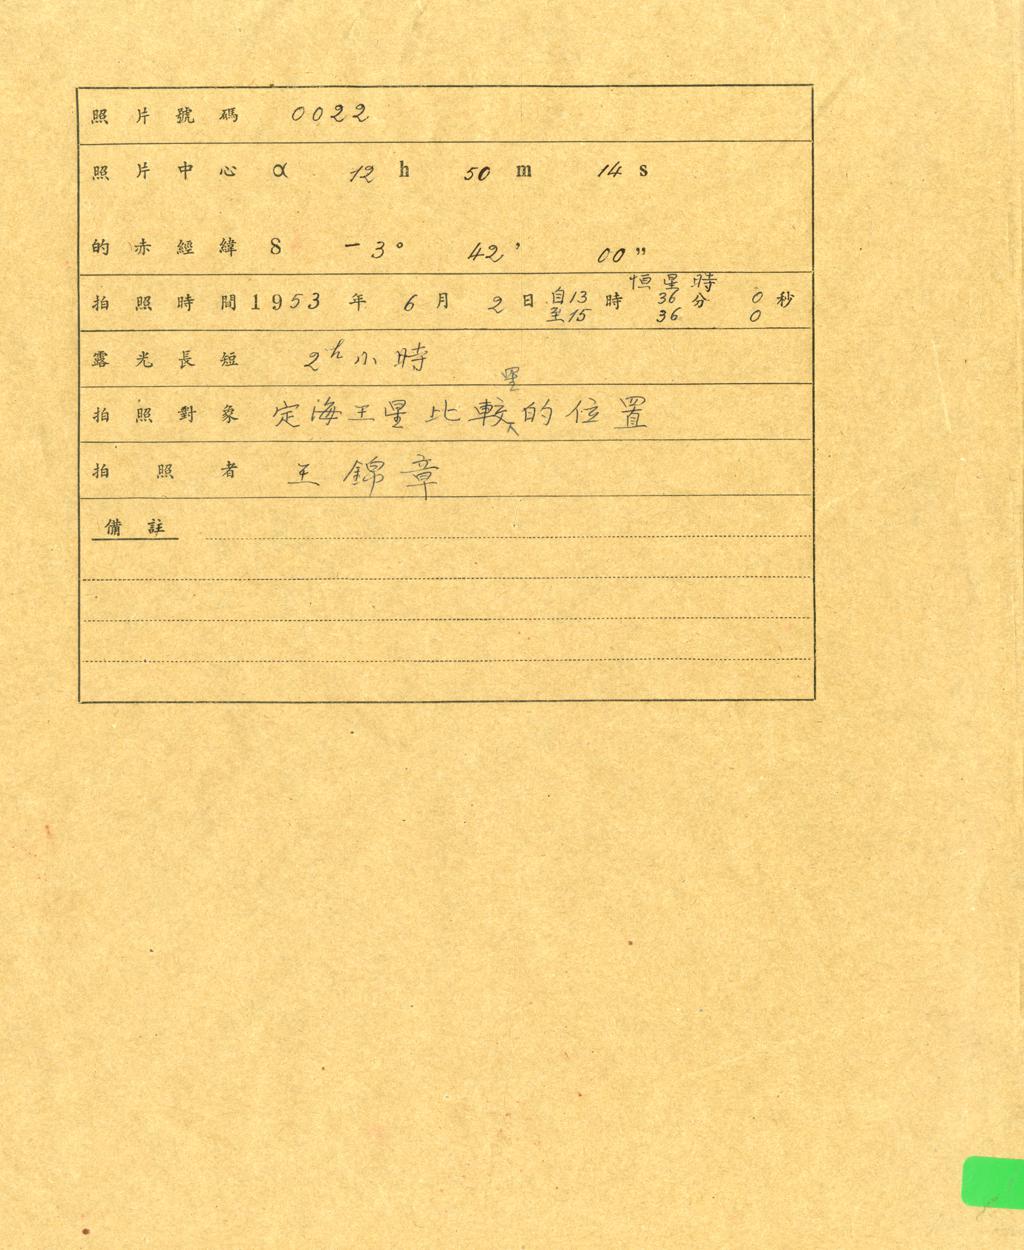 照片號碼 0022
照片中心 α 12 h 50 m 14 s
的赤經緯 δ －3° 42’ 00”
恒星時
拍照時間 1953 年 6 月 2 日 自13 時 36 分 0 秒
至15 36 0
露光長短 2h小時
星
拍照對象 定海王星比較的位置
拍照者 王錦章
備註